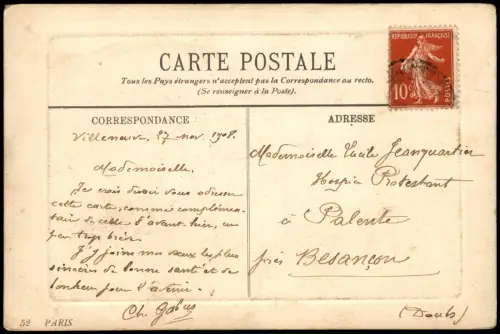 CARTE POSTALE
Tous les Pays étrangers n'acceptent pas la Correspondance au recto.
(Se renseigner à la Poste).
REPUBLIQUE FRANÇAISE
10c
POSTES
CORRESPONDANCE
Villeneuve, 27 nov. 1908.
Mademoiselle,
Je crois devoir vous adresser
cette carte, comme complémen-
taire de celle d'avant-hier, un
peu trop
J'y joins mes vœux les plus
sincères de bonne santé et de
bonheur pour l'avenir.
Ch. Galus
ADRESSE
Mademoiselle Lucile Jeanquartier
Hospice Protestant
à Palente
près Besançon
(Doubs)
52 PARIS